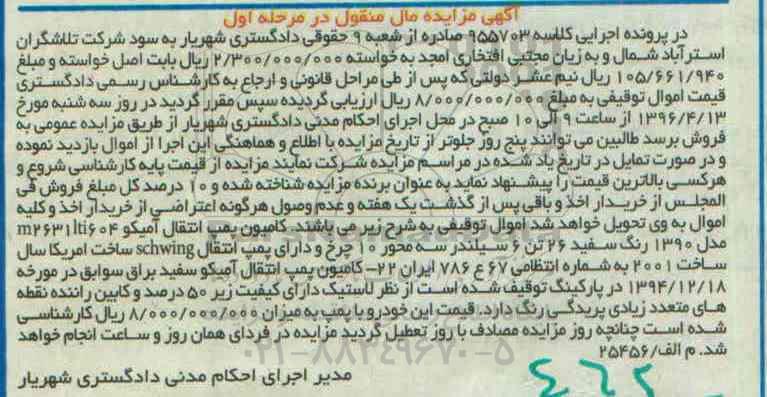 آگهی مزایده مال منقول در مرحله اول
در پرونده اجرایی کلاسه ۹۵۵۷۰۳ صادره از شعبه ۹ حقوقی دادگستری شهریار به سود شرکت تلاشگران
استرآباد شمال و به زیان مجتبی افتخاری امجد به خواسته ۲/۳۰۰/۰۰۰/۰۰۰ ریال بابت اصل خواسته و مبلغ
۱۰۵/۶۶۱/۹۴۰ ریال نیم عشر دولتی که پس از طی مراحل قانونی و ارجاع به کارشناس رسمی دادگستری
قیمت اموال توقیفی به مبلغ ۸/۰۰۰/۰۰۰/۰۰۰ ریال ارزیابی گردیده سپس مقرر گردید در روز سه شنبه مورخ
۱۳۹۶/۴/۱۳ از ساعت ۹ الی ۱۰ صبح در محل اجرای احکام مدنی دادگستری شهریار از طریق مزایده عمومی به
فروش برسد طالبین می توانند پنج روز جلوتر از تاریخ مزایده با اطلاع و هماهنگی این اجرا از اموال بازدید نموده
و در صورت تمایل در تاریخ یاد شده در مراسم مزایده شرکت نمایند مزایده از قیمت پایه کارشناسی شروع و
هرکسی بالاترین قیمت را پیشنهاد نماید به عنوان برنده مزایده شناخته شده و ۱۰ درصد کل مبلغ فروش فی
المجلس از خریدار اخذ و باقی پس از گذشت یک هفته و عدم وصول هرگونه اعتراضی از خریدار اخذ و کلیه
اموال به وی تحویل خواهد شد اموال توقیفی به شرح زیر می باشند. کامیون پمپ انتقال آمیکو m۲۶۳۱lti۶۰۴
مدل ۱۳۹۰ رنگ سفید ۲۶ تن ۶ سیلندر سه محور ۱۰ چرخ و دارای پمپ انتقال schwing ساخت امریکا سال
ساخت ۲۰۰۱ به شماره انتظامی ۶۷ ع ۷۸۶ ایران ۲۲- کامیون پمپ انتقال آمیکو سفید براق سوابق در مورخه
۱۳۹۴/۱۲/۱۸ در پارکینگ توقیف شده است از نظر لاستیک دارای کیفیت زیر ۵۰ درصد و کابین راننده نقطه
های متعدد زیادی پریدگی رنگ دارد. قیمت این خودرو با پمپ به میزان ۸/۰۰۰/۰۰۰/۰۰۰ ریال کارشناسی
شده است چنانچه روز مزایده مصادف با روز تعطیل گردید مزایده در فردای همان روز و ساعت انجام خواهد
شد. م الف/۲۵۴۵۶
۰۲۱-۸۸۳۴۹۶۷۰-۵
مدیر اجرای احکام مدنی دادگستری شهریار